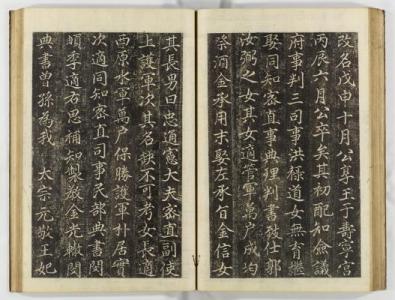 改名戊申十月公尊王于壽寧宮
丙辰六月公卒矣其初配知僉議
府事判三司事洪祿遒女無育繼
娶同知密直事典理判書致仕郭
汝弼之女其女適管軍萬戶成均
祭酒金承用末娶左承旨金信女
其長男曰忠通憲大夫密直副使
上護軍次其名缺不可考女長適
西原水軍萬戶保勝護軍朴居實
次適同知密直司事民部典書閔
頔季適右思補知製敎金光轍閔
典書曾孫為我 太宗元敬王妃